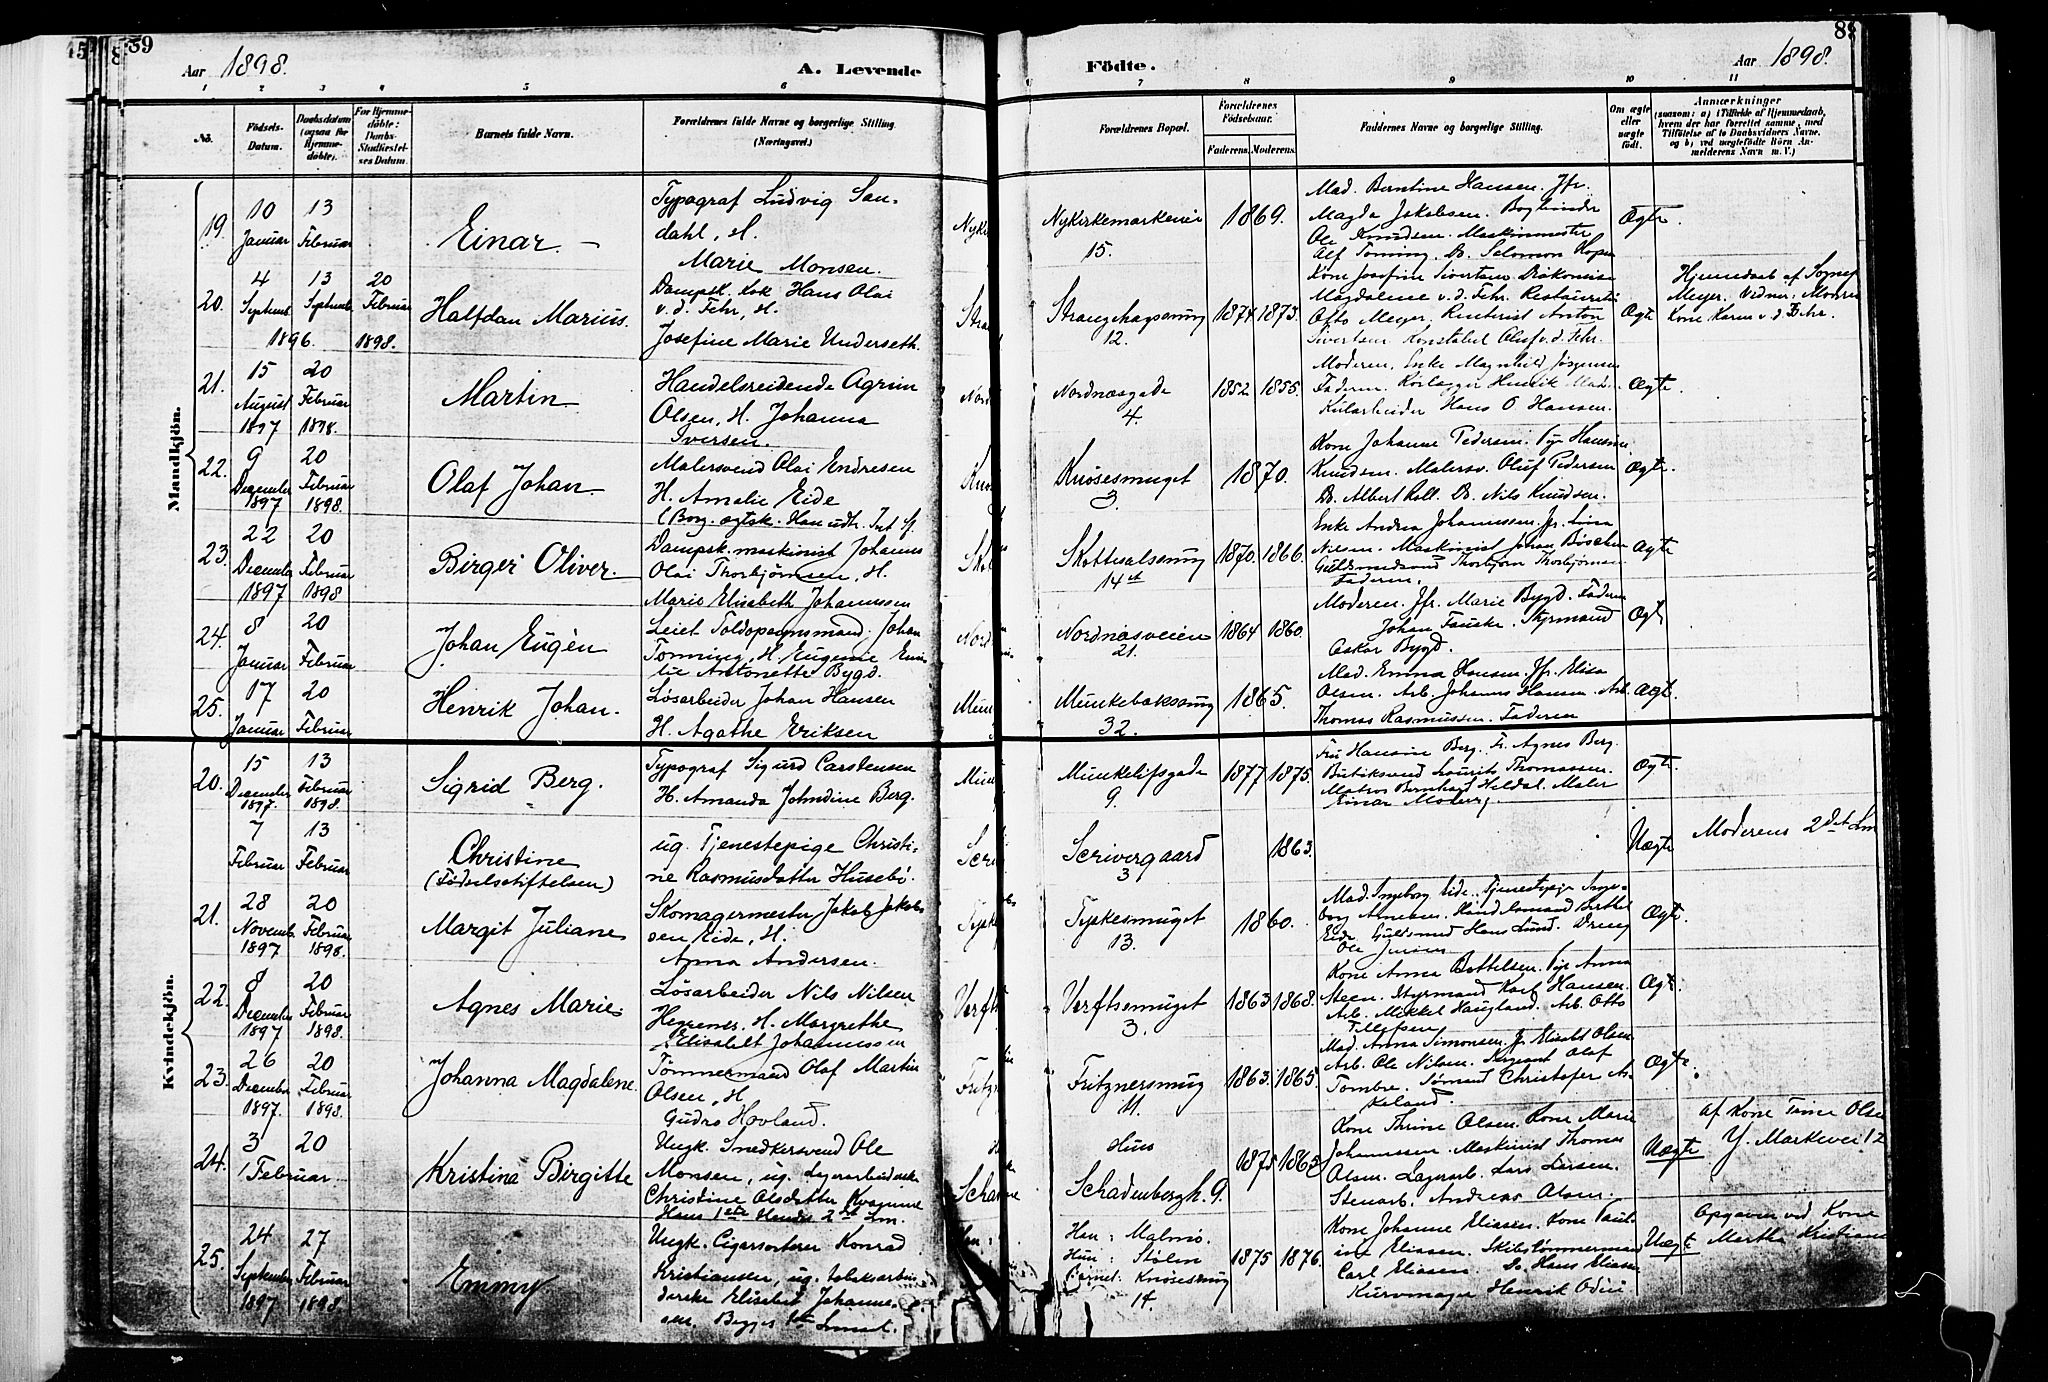 39
Aar 1898.
A. Levende
Födte.
Aar 1898.
1 2 3 4 5 6 7 8 9 10 11
No.
Födsels-Datum.
Daabsdatum (ogsaa for Hjemmedöbte).
For Hjemmedöbte: Daabs-Stadfæstelses Datum.
Barnets fulde Navn.
Forældrenes fulde Navne og borgerlige Stilling. (Næringsvei.)
Forældrenes Bopæl.
Forældrenes Födselsaar.
Faderens. Moderens.
Faddernes Navne og borgerlige Stilling.
Om ægte eller uægte födt.
Anmærkninger
(saasom: a) i Tilfælde af Hjemmedaab, hvem der har forrettet samme, med Tilföielse af to Daabsvidners Navne, og b) ved uægtefödte Börn Anmelderens Navn m. V.)
Mandkjön.
19. 10 Januar 13 Februar
Einar. –
Typograf Ludvig San-
dahl, H.
Marie Monsen.
Nykirkemarkeveien
15.
1869.
Mad. Berntine Hansen. Jfr.
Magda Jakobsen. Bogbinder
Ole Knudsen. Maskinmester
Ægte.
20. 4 Septemb. 13 Septemb. 1896. 20 Februar 1898.
Halfdan Marius.
Dampsk. Kok Hans Olai
v.d. Fehr, H.
Josefine Marie Underseth.
Strangehagesmug
12.
1874 1873.
Kone Josefine Sivertsen. Diakonisse
Magdalene v.d. Fehr. Restauratør
Otto Meyer. Rentenist Anton
Sivertsen. Konstabel Oluf v.d. Fehr.
Ægte
Hjemmedaab af Sognep.
Meyer. Vidner: Moderen
Kone Karen v.d. Fehr.
21. 15 August 1897 20 Februar 1898.
Martin.
Handelsreidende Agrim
Olsen, H. Johanna
Iversen.
Nordnæsgade
4.
1852 1855.
Moderen. Enke Magnhild Jørgensen
Faderen.
Kularbeider Hans O Hansen.
Ægte.
22. 9 December 1897 20 Februar 1898.
Olaf Johan.
Malersvend Olai Endresen
H. Amalie Eide
(Borg. ægtsk. Han udtr.
Knøsesmuget
3.
1870.
Kone Johanne Pedersen. Pige Hansine
Knudsen. Malersv. Oluf Pedersen
Do. Albert Roll. Do. Nils Knudsen.
Ægte.
23. 22 December 1897 20 Februar 1898
Birger Oliver.
Dampsk. maskinist Johannes
Olai Thorbjørnsen, H.
Marie Elisabeth Johannessen
Skottesalsmug
14
1870. 1866.
Enke Andrea Johannessen. Jfr. Lina
Nilsen. Maskinist Johan
Guldsmedsvend Thorbjørn Thorbjørnsen.
Faderen.
Ægte
24. 8 Januar 20 Februar
Johan Eugèn
Leiet Toldopsynsmand. Johan
Tønning, H. Eugenie Emi-
lie Antonette Bygd.
Nordnæsveien
21.
1864 1860.
Moderen. Jfr. Marie Bygd. Faderen
Johan Fauske. Styrmand
Oskar Bygd.
Ægt
25. 17 Januar 20 Februar
Henrik Johan.
Løsarbeider Johan Hansen
H. Agathe Eriksen
Munkebæksmug
32.
1865.
Mad. Emma Hansen. Jfr. Elisa
Olsen. Arb. Johannes Hansen. Arb.
Thomas Rasmussen. Faderen
Ægt.
Kvindekjön.
20. 15 December 1897. 13 Februar 1898.
Sigrid Berg.
Typograf Sigurd Carstensen
H. Amanda Johndine Berg.
Munkelifsgade
9.
1877 1875.
Fru Hansine Berg. Fr. Agnes Berg.
Butiksvend Laurits Thomassen.
Matros Bernhard Heldal. Maler
Einar Moberg.
Ægt.
7 Februar 13 Februar
Christine
(Fødselsstiftelsen)
ug. Tjenestepige Christi-
ne Rasmusdatter Husebø.
Scrivergaard
3
1863.
Uægte
Moderens 2det Lm
21. 28 Novemb. 1897 20 Februar 1898.
Margit Juliane
Skomagermester Jakob Jakob-
sen Eide, H.
Anna Andersen.
Tyskesmuget
13.
1860.
Mad. Ingeborg Eide. Tjenestepige Inge-
borg Arnesen. Handelsmand Berthel
Eide Guldsmed Hans Lund. Dreng
Ole Jensen
Ægte.
22. 8 December 1897 20 Februar 1898.
Agnes Marie.
Løsarbeider Nils Nilsen
Hegrenes, H. Margrethe
Elisabeth Johannessen
Verftsmuget
3.
1863 1868.
Kone Anna Bottelsen. Pige Anna
Steen. Styrmand Karl Hansen.
Arb. Mikkel Haugland. Arb. Otto
Tellefsen
Ægt.
23. 26 December 1897. 20 Februar 1898.
Johanna Magdalene.
Tømmermand Olaf Martin
Olsen, H
Gudrs Hovland.
Fritznersmug
11.
1863. 1865.
Mad. Anna Simonsen. Jf. Elisabt Olsen
Arb. Ole Nilsen. Sergeant Olaf
Tombre. Sømand Christofer As-
keland.
Ægte.
24. 3 Februar 20
Kristina Birgitte
Ungk. Snedkersvend Ole
Monsen, ug. Lagerarbeiderske
Christine Olsdatter Kvamme
Hans 1ste Hendes 2det Lm.
Hus
Schadenbergh. 9.
1875 1865
Kone Thrine Olsen. Kone Marie
Johannessen. Maskinist Thomas
Olsen. Lagerarb. Lars Larsen.
Stenarb. Andreas Olsen.
Uægte
af Kone Trine Olsen
Y. Markevei 12
25. 24 September 1897 27 Februar 1898.
Emmy
Ungk. Cigarsorterer Konrad
Kristiansen, ug. tobaksarbei-
derske Elisabet Johannes-
sen. Begges 1ste Lmaal.
Han: Malmö.
Hun: Stølen
Barnet: Knøsesmug
14.
1875 1876.
Kone Johanne Eliassen. Kone Paul-
ine Eliassen. Skibstømmermand
Carl Eliassen. Do. Hans Eliassen
Kurvmager Henrik
Uægte
Opgaven ved Kone
Martha Kristiansen